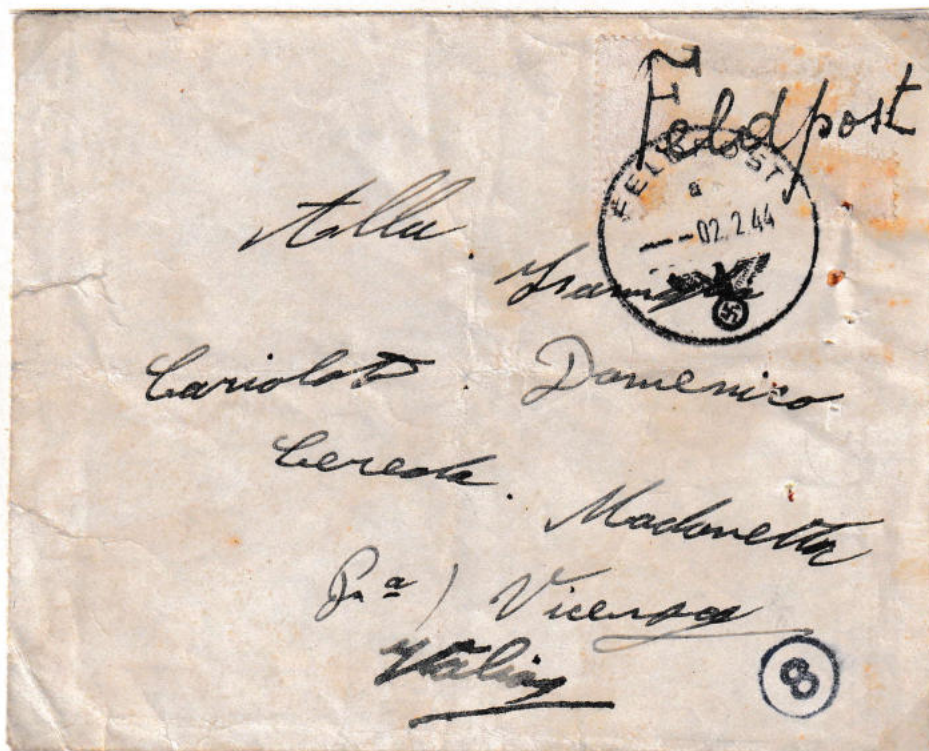 Feldpost
FELDPOST
a
---02.2.44
Alla
Famiglia
Cariolato Domenico
Cereda. Madonetta
Pr a) Vicenza
Italia
8